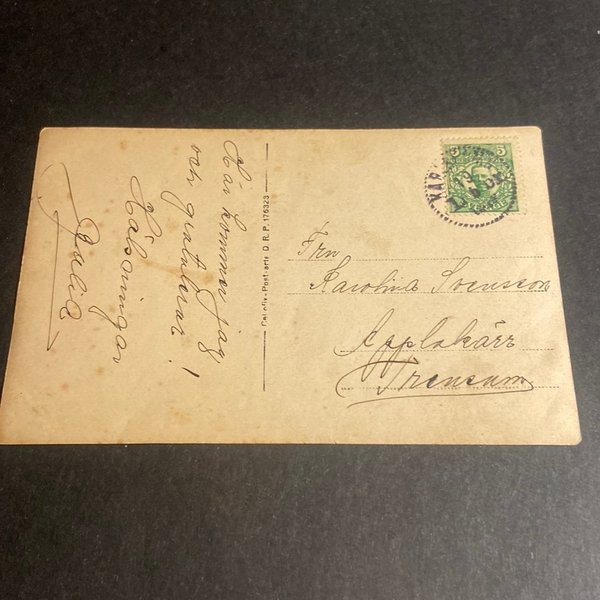 Här kommer jag
och gratulerar!
Hälsningar
Julia
Post-arte D.R.P. 176323
Fru
Karolina Svensson
Applekärr
Trensum
5 5